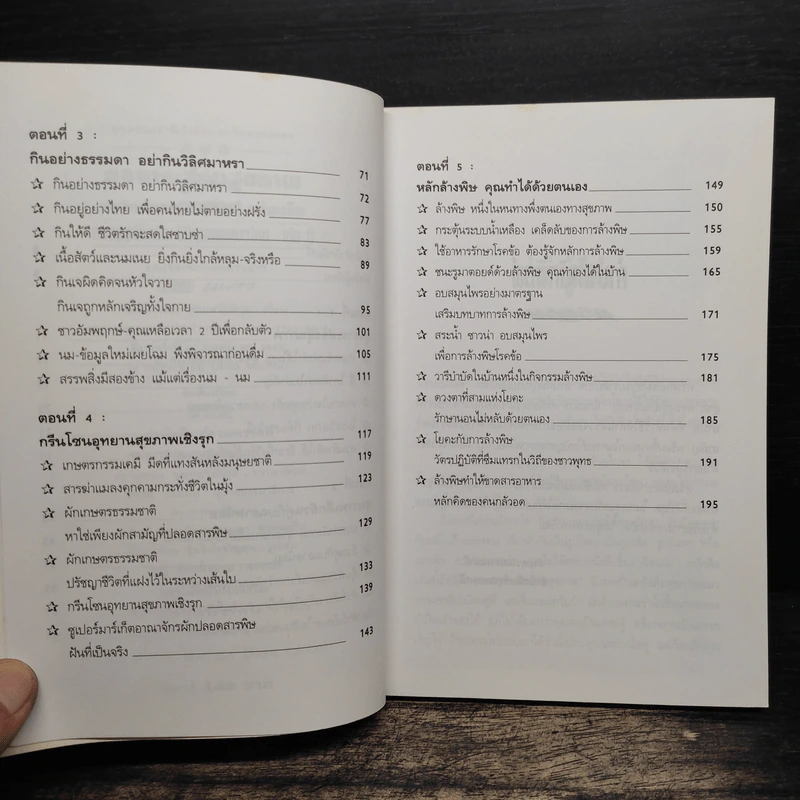 ตอนที่ 3 :
กินอย่างธรรมดา อย่ากินวิลิศมาหรา 71
☆ กินอย่างธรรมดา อย่ากินวิลิศมาหรา 72
☆ กินอยู่อย่างไทย เพื่อคนไทยไม่ตายอย่างฝรั่ง 77
☆ กินให้ดี ชีวิตรักจะสดใสซาบซ่า 83
☆ เนื้อสัตว์และนมเนย ยิ่งกินยิ่งใกล้หลุม-จริงหรือ 89
☆ กินเจผิดคิดจนหัวใจวาย
กินเจถูกหลักเจริญทั้งใจกาย 95
☆ ชาวอัมพฤกษ์-คุณเหลือเวลา 2 ปีเพื่อกลับตัว 101
☆ นม-ข้อมูลใหม่เผยโฉม พึงพิจารณาก่อนดื่ม 105
☆ สรรพสิ่งมีสองข้าง แม้แต่เรื่องนม - นม 111
ตอนที่ 4 :
กรีนโซนอุทยานสุขภาพเชิงรุก 117
☆ เกษตรกรรมเคมี มีดที่แทงสันหลังมนุษยชาติ 119
☆ สารฆ่าแมลงคุกคามกระทั่งชีวิตในมุ้ง 123
☆ ผักเกษตรธรรมชาติ
หาใช่เพียงผักสามัญที่ปลอดสารพิษ 129
☆ ผักเกษตรธรรมชาติ
ปรัชญาชีวิตที่แฝงไว้ในระหว่างเส้นใบ 133
☆ กรีนโซนอุทยานสุขภาพเชิงรุก 139
☆ ซูเปอร์มาร์เก็ตอาณาจักรผักปลอดสารพิษ
ฝันที่เป็นจริง 143
ตอนที่ 5 :
หลักล้างพิษ คุณทำได้ด้วยตนเอง 149
☆ ล้างพิษ หนึ่งในหนทางพึ่งตนเองทางสุขภาพ 150
☆ กระตุ้นระบบน้ำเหลือง เคล็ดลับของการล้างพิษ 155
☆ ใช้อาหารรักษาโรคข้อ ต้องรู้จักหลักการล้างพิษ 159
☆ ชนะรูมาตอยด์ด้วยล้างพิษ คุณทำเองได้ในบ้าน 165
☆ อบสมุนไพรอย่างมาตรฐาน
เสริมบทบาทการล้างพิษ 171
☆ สระน้ำ ซาวน่า อบสมุนไพร
เพื่อการล้างพิษโรคข้อ 175
☆ วารีบำบัดในบ้านหนึ่งในกิจกรรมล้างพิษ 181
☆ ดวงตาที่สามแห่งโยคะ
รักษานอนไม่หลับด้วยตนเอง 185
☆ โยคะกับการล้างพิษ
วัตรปฏิบัติที่ซึมแทรกในวิถีของชาวพุทธ 191
☆ ล้างพิษทำให้ขาดสารอาหาร
หลักคิดของคนกลัวอด 195